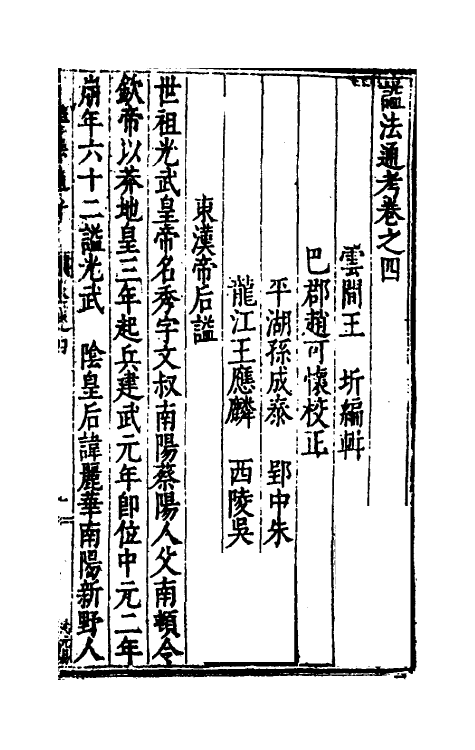 謚法通考卷之四
雲間王 圻編輯
巴郡趙可懷校正
平湖孫成泰 郢中朱
龍江王應麟 西陵吳
東漢帝后謚
世祖光武皇帝名秀字文叔南陽蔡陽人父南頓令
欽帝以莽地皇三年起兵建武元年卽位中元二年
崩年六十二謚光武 陰皇后諱麗華南陽新野人